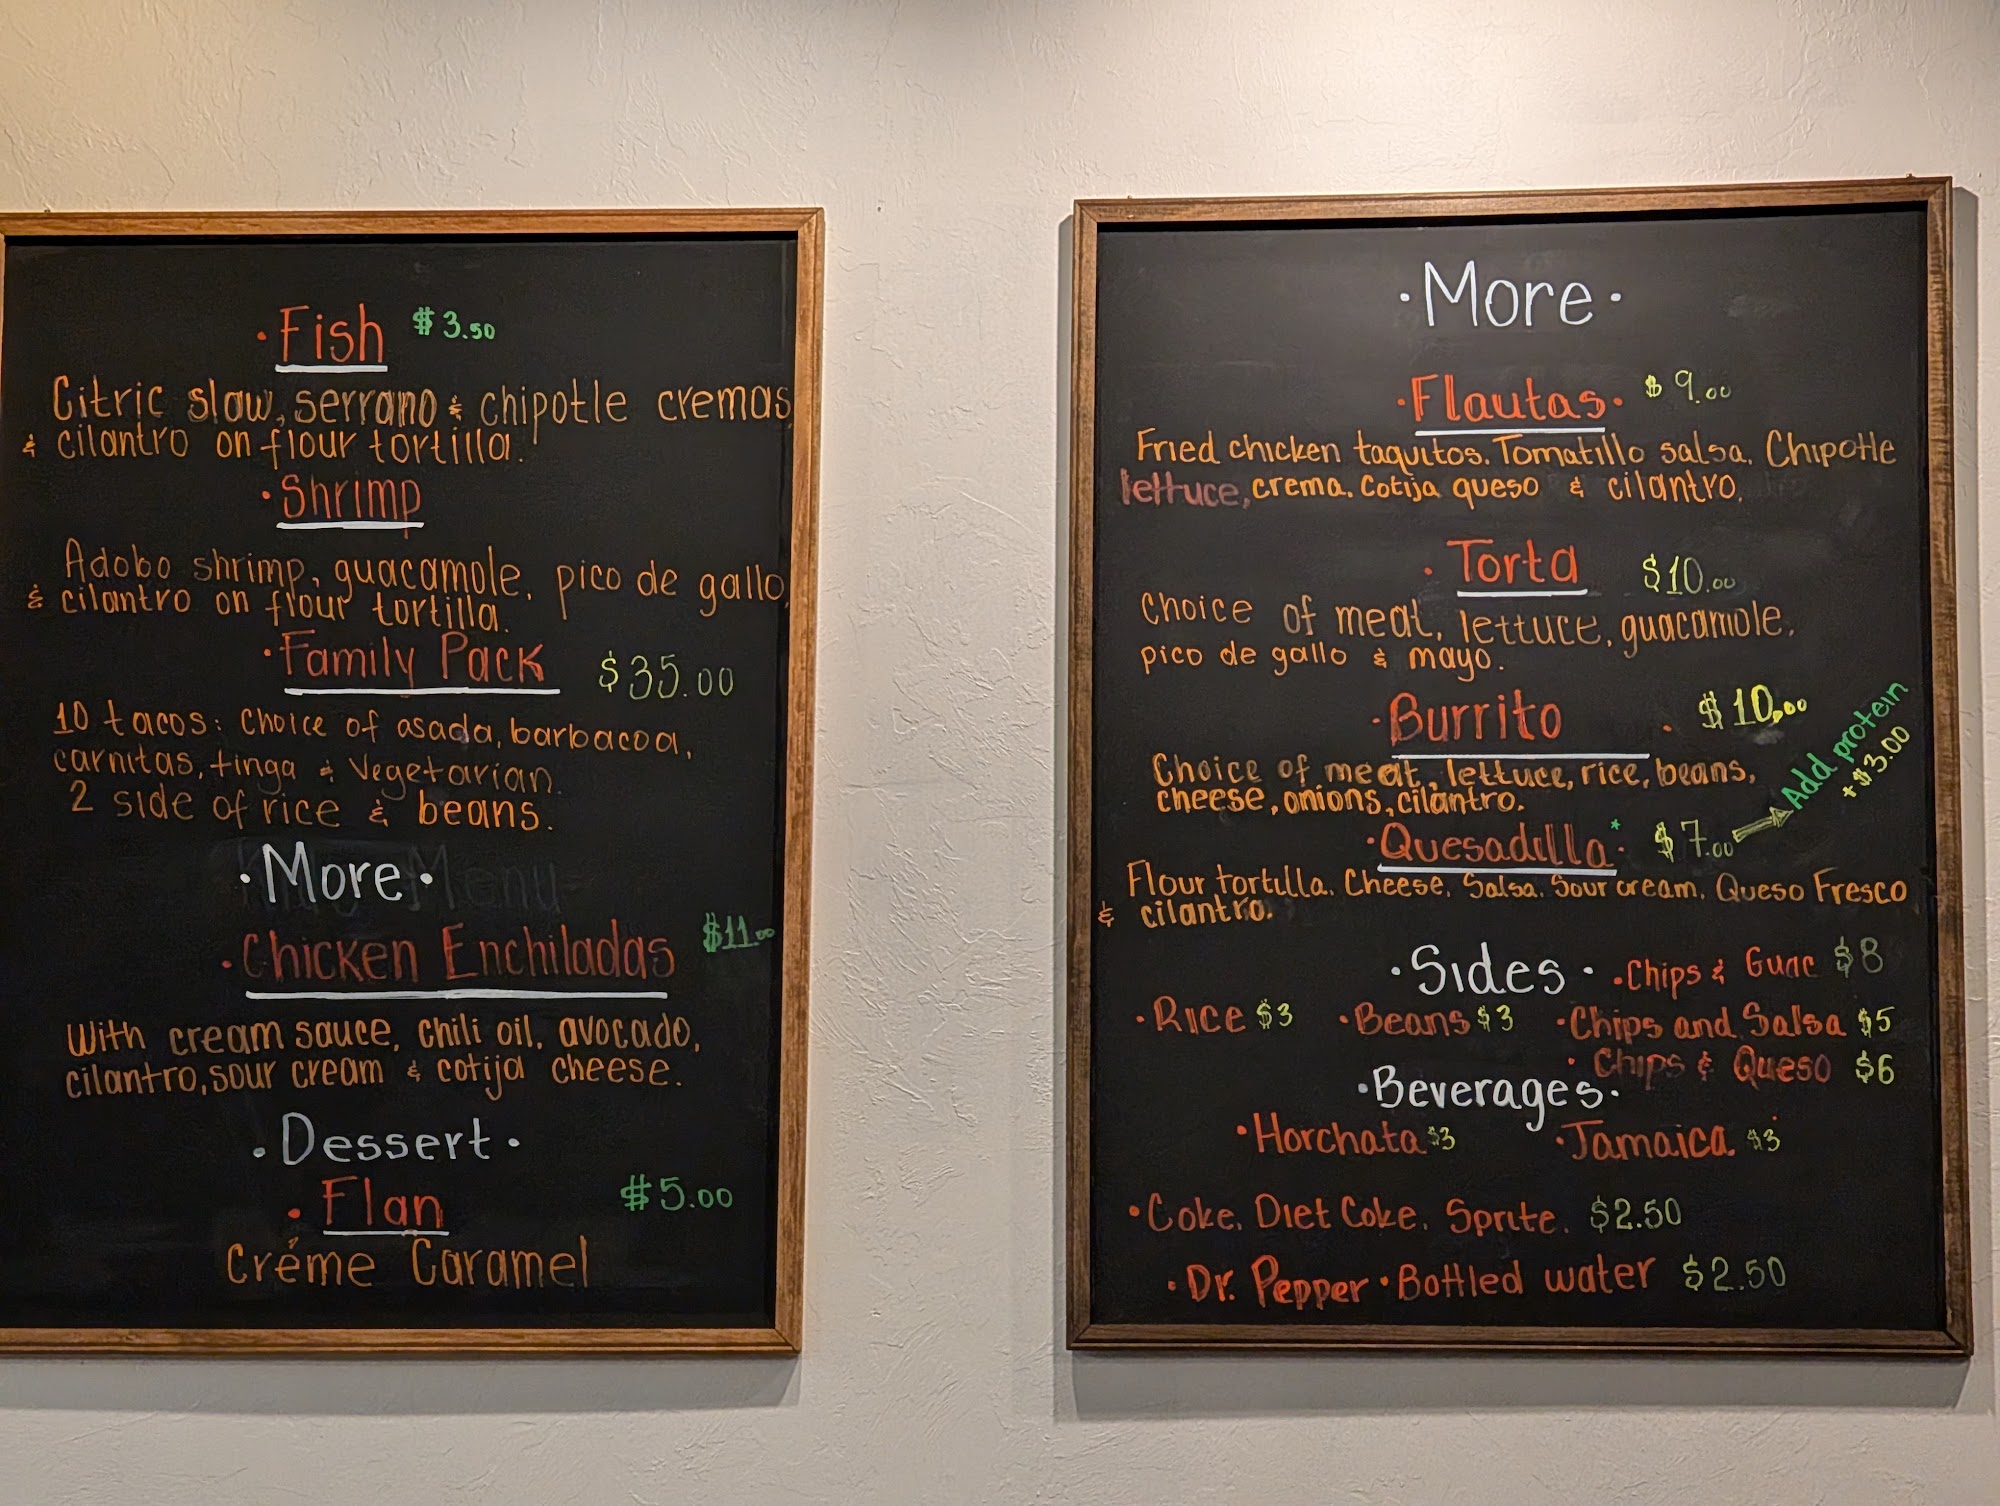 ·Fish $3.50
Citric slaw, serrano & chipotle cremas
& cilantro on flour tortilla.
·Shrimp
Adobo shrimp, guacamole, pico de gallo,
& cilantro on flour tortilla.
·Family Pack $35.00
10 tacos: choice of asada, barbacoa,
carnitas, tinga & vegetarian.
2 side of rice & beans.
·More· Menu
·Chicken Enchiladas $11.00
With cream sauce, chili oil, avocado,
cilantro, sour cream & cotija cheese.
·Dessert·
·Flan $5.00
Créme Caramel
·More·
·Flautas· $9.00
Fried chicken taquitos. Tomatillo salsa. Chipotle
lettuce, crema. Cotija queso & cilantro.
·Torta $10.00
Choice of meat, lettuce, guacamole,
pico de gallo & mayo.
·Burrito· $10.00
Choice of meat, lettuce, rice, beans,
cheese, onions, cilantro.
Add protein
+$3.00
·Quesadilla*· $7.00
Flour tortilla. Cheese. Salsa. Sour cream. Queso Fresco
& cilantro.
·Sides· ·Chips & Guac $8
·Rice $3 ·Beans $3 ·Chips and Salsa $5
·Chips & Queso $6
·Beverages·
·Horchata $3 ·Jamaica $3
·Coke. Diet Coke. Sprite. $2.50
·Dr. Pepper ·Bottled water $2.50